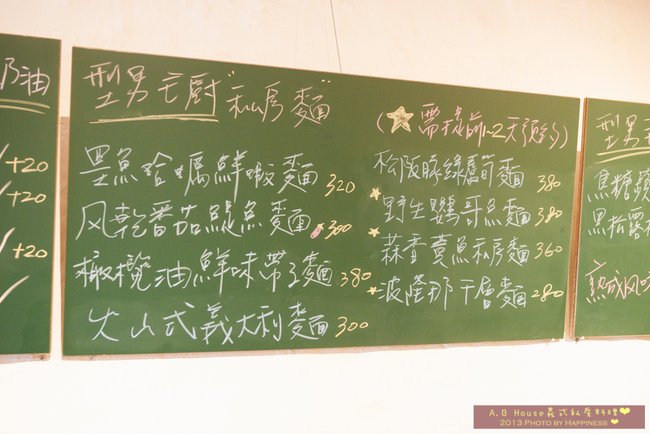 奶油
+20
+20
+20
型男主廚"私房麵"
墨魚哈蠣鮮蝦麵 320
风乾番茄鯷魚麵 300
橄欖油鮮味帶子麵 380
火山式義大利麵 300
(需提前1~2天預約)
松阪豚綠蘆筍麵 380
野生鸚哥魚麵 380
蒜香賣魚私房麵 360
波隆那千層麵 280
型男
焦糖蘋
黑松露
熟成风味
A.B House義式私房料理
2013 PHOTO BY HAPPINESS